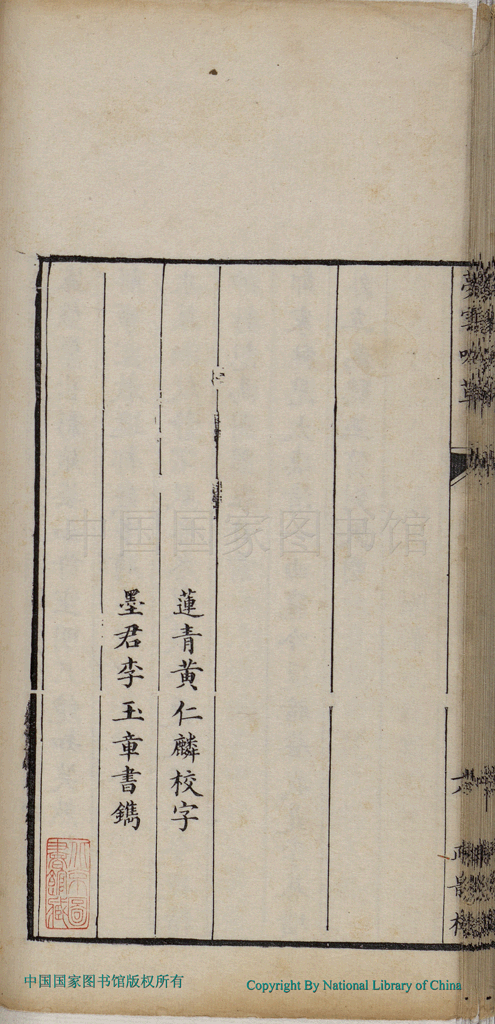 蓮青黃仁麟校字
墨君李玉章書鐫
北京圖書館藏
中国国家图书馆
中国国家图书馆版权所有
Copyright By National Library of China